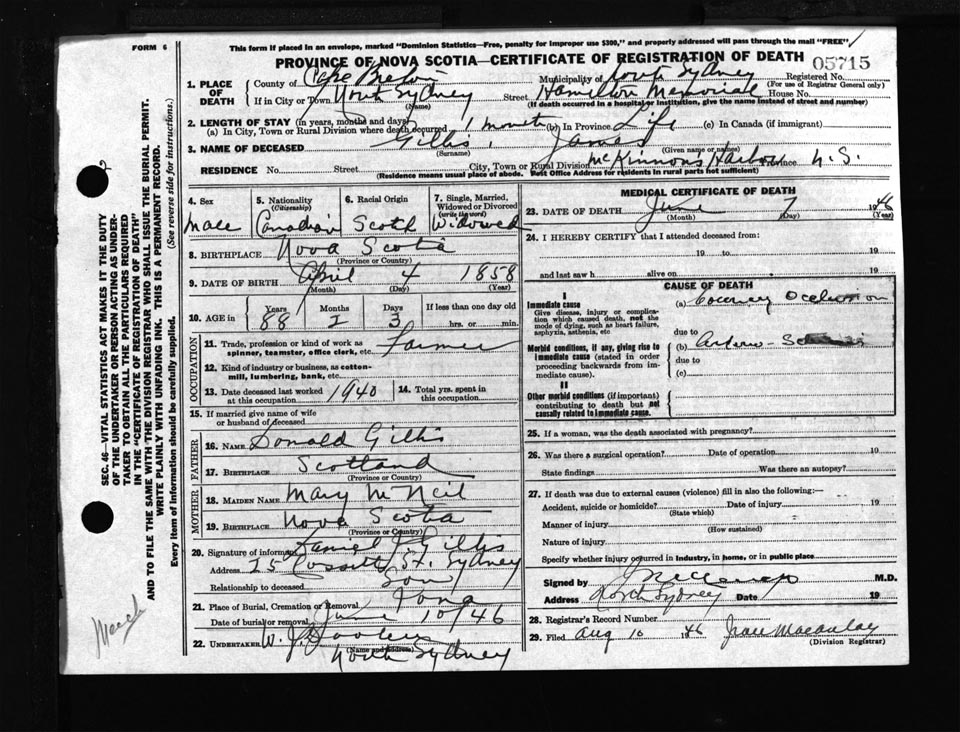 FORM 6
This form if placed in an envelope, marked "Dominion Statistics—Free, penalty for improper use $300," and properly addressed will pass through the mail "FREE"
PROVINCE OF NOVA SCOTIA—CERTIFICATE OF REGISTRATION OF DEATH
05715
1. PLACE OF DEATH
County of Cape Breton Municipality of North Sydney Registered No.
(For use of Registrar General only)
If in City or Town North Sydney Street Hamilton Memorial House No.
(Name) (If death occurred in a hospital or institution, give the name instead of street and number)
2. LENGTH OF STAY (in years, months and days)
(a) In City, Town or Rural Division where death occurred 1 month (b) In Province Life (c) In Canada (if immigrant)
3. NAME OF DECEASED Gillis, James
(Surname) (Given name or names)
RESIDENCE No. Street City, Town or Rural Division McKinnons Harbour Province N.S.
(Residence means usual place of abode. Post Office Address for residents in rural parts not sufficient)
4. Sex
Male
5. Nationality
(Citizenship)
Canadian
6. Racial Origin
Scotch
7. Single, Married, Widowed or Divorced
(write the word)
Widowed
8. BIRTHPLACE Nova Scotia
(Province or Country)
9. DATE OF BIRTH April 4 1858
(Month) (Day) (Year)
10. AGE in
Years Months Days If less than one day old
88 2 3 hrs. or min.
OCCUPATION
11. Trade, profession or kind of work as spinner, teamster, office clerk, etc. Farmer
12. Kind of industry or business, as cotton-mill, lumbering, bank, etc.
13. Date deceased last worked at this occupation 1940
14. Total yrs. spent in this occupation
15. If married give name of wife or husband of deceased
FATHER
16. NAME Donald Gillis
17. BIRTHPLACE Scotland
(Province or Country)
MOTHER
18. MAIDEN NAME Mary McNeil
19. BIRTHPLACE Nova Scotia
(Province or Country)
20. Signature of informant Daniel J Gillis
Address 25 Cossitt St. Sydney
Relationship to deceased Son
21. Place of Burial, Cremation or Removal Iona
Date of burial or removal June 10/46
22. UNDERTAKER W. J. Dooley
(Name and Address)
North Sydney
MEDICAL CERTIFICATE OF DEATH
23. DATE OF DEATH June 7 1946
(Month) (Day) (Year)
24. I HEREBY CERTIFY that I attended deceased from:
19 to 19
and last saw h alive on 19
CAUSE OF DEATH
I
Immediate cause
Give disease, injury or complication which caused death, not the mode of dying, such as heart failure, asphyxia, asthenia, etc
(a) Coronary Occlusion
due to
Morbid conditions, if any, giving rise to immediate cause (stated in order proceeding backwards from immediate cause).
(b) Arterio-
due to
(c)
II
Other morbid conditions (if important) contributing to death but not causally related to immediate cause.
25. If a woman, was the death associated with pregnancy?
26. Was there a surgical operation? Date of operation 19
State findings Was there an autopsy?
27. If death was due to external causes (violence) fill in also the following:—
Accident, suicide or homicide? Date of injury 19
(State which)
Manner of injury
(How sustained)
Nature of injury
Specify whether injury occurred in industry, in home, or in public place
Signed by M.D.
Address North Sydney Date 19
28. Registrar's Record Number
29. Filed Aug 10 1946 Jean Macaulay
(Division Registrar)
SEC. 46—VITAL STATISTICS ACT MAKES IT THE DUTY
OF THE UNDERTAKER OR PERSON ACTING AS UNDER-
TAKER TO OBTAIN ALL THE PARTICULARS REQUIRED
IN THE "CERTIFICATE OF REGISTRATION OF DEATH"
AND TO FILE THE SAME WITH THE DIVISION REGISTRAR WHO SHALL ISSUE THE BURIAL PERMIT.
WRITE PLAINLY WITH UNFADING INK. THIS IS A PERMANENT RECORD.
Every item of information should be carefully supplied. (See reverse side for instructions.)